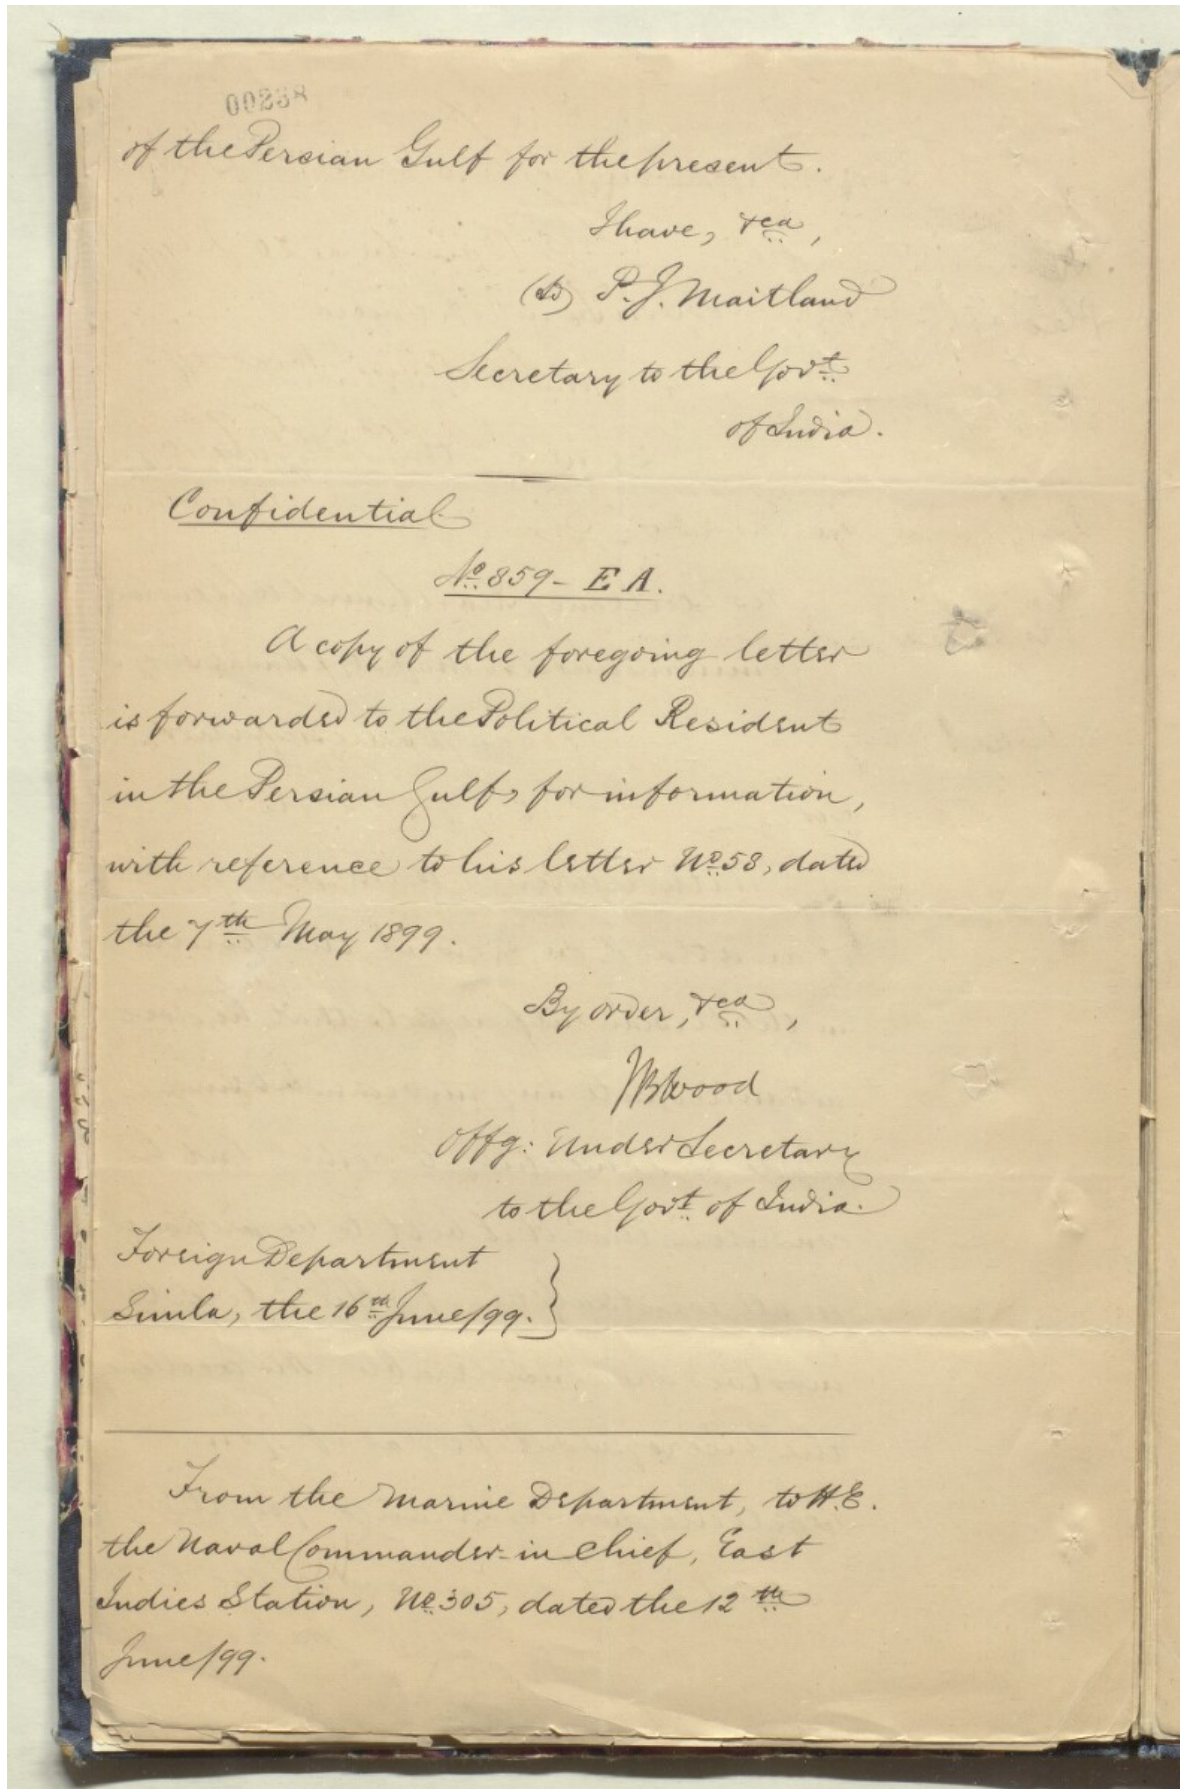 of the Persian Gulf for the present.
I have, &ca,
(Sd) P. J. Maitland
Secretary to the Govt.
of India.
Confidential
No. 859 - E A.
A copy of the foregoing letter
is forwarded to the Political Resident
in the Persian Gulf, for information,
with reference to his letter No. 58, dated
the 7th May 1899.
By order, &ca,
JBWood
Offg: Under Secretary
to the Govt. of India.
Foreign Department
Simla, the 16th June/99.
From the Marine Department, to H.E.
the Naval Commander-in Chief, East
Indies Station, No. 305, dated the 12th
June/99.